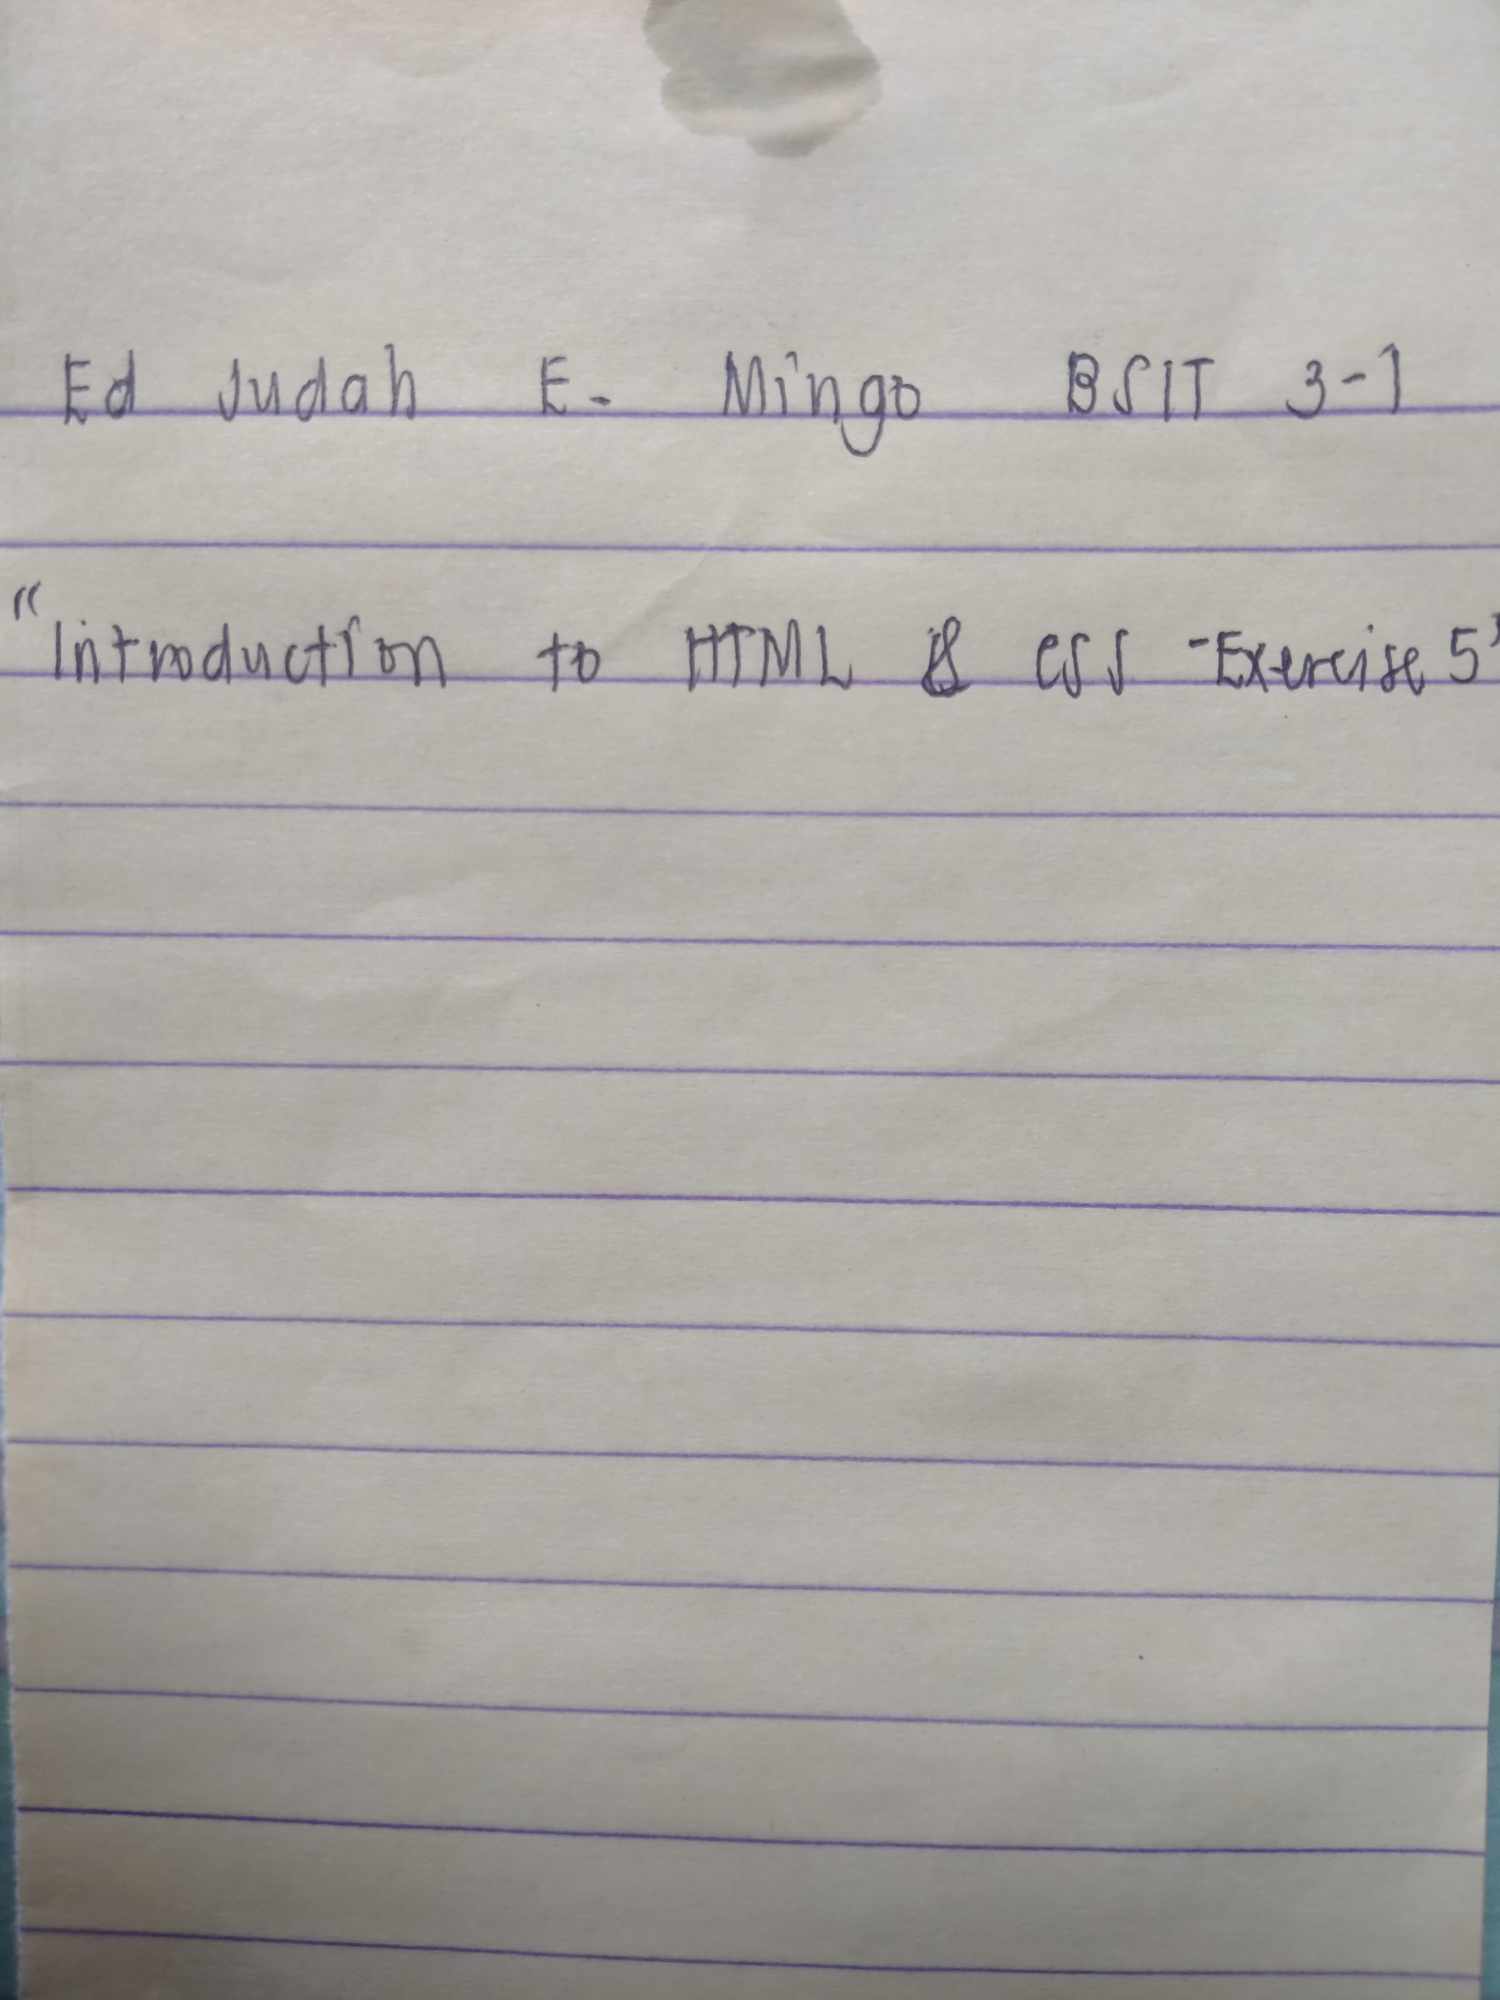 Ed Judah E. Mingo BSIT 3-1
"Introduction to HTML & CSS - Exercise 5"